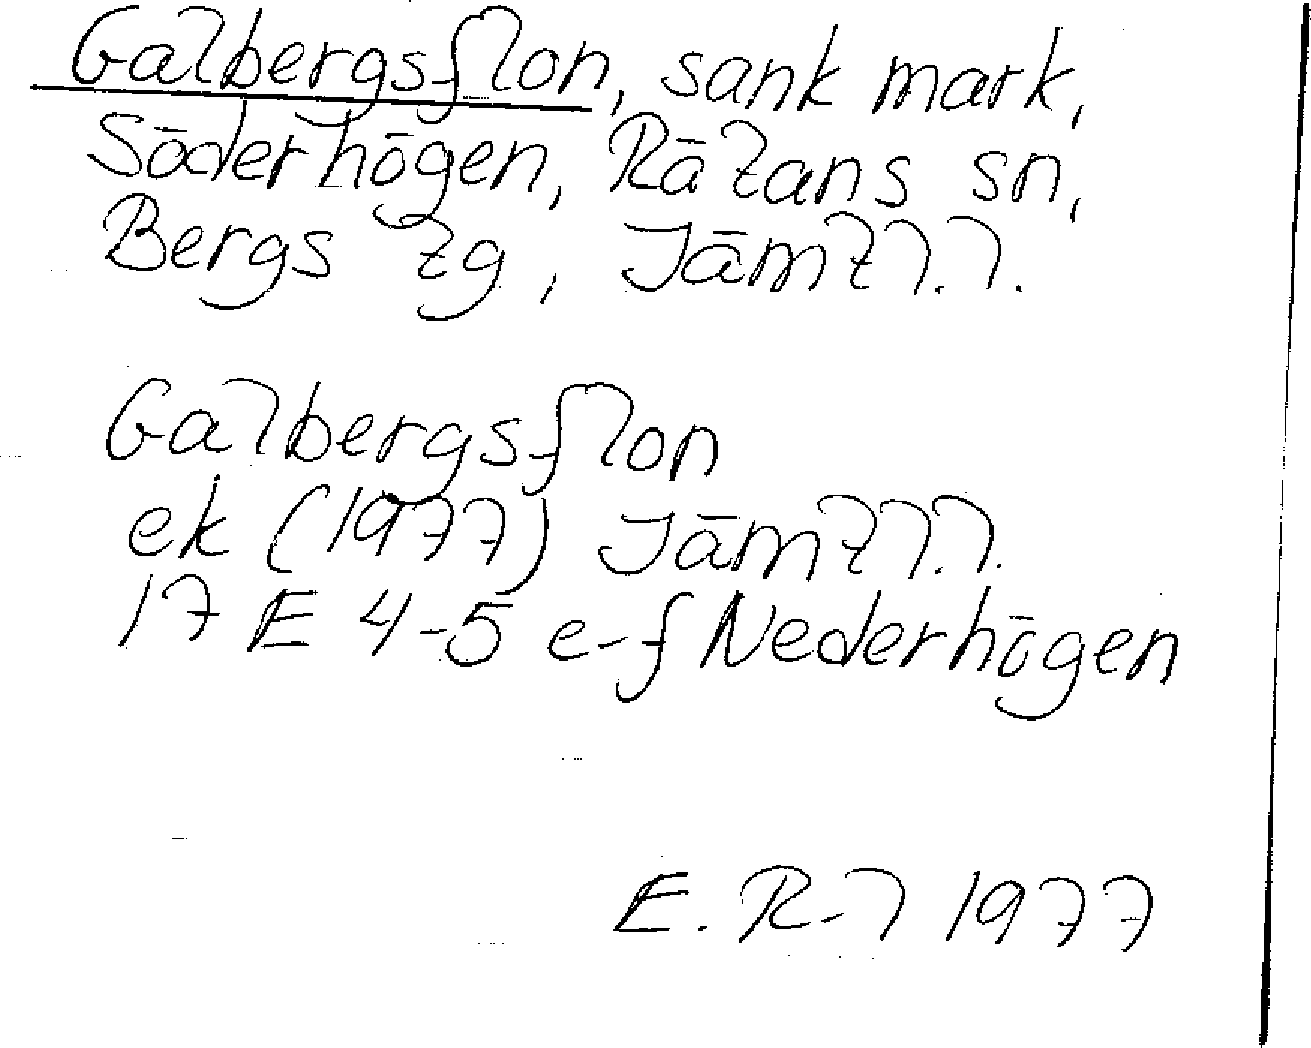 Galbergsflon, sank mark,
Söderhögen, Rätans sn,
Bergs tg, Jämtl.l.
Galbergsflon
ek (1977) Jämtl.l.
17 E 4-5 e-f Nederhögen
E. R-l 1977